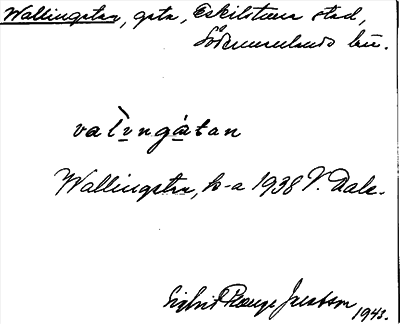 Wallingatan, gata, Eskilstuna stad,
Södermanlands län.
valingátan
Wallingatan, h-a 1938 V. Dala.
Sigfrid 1943.